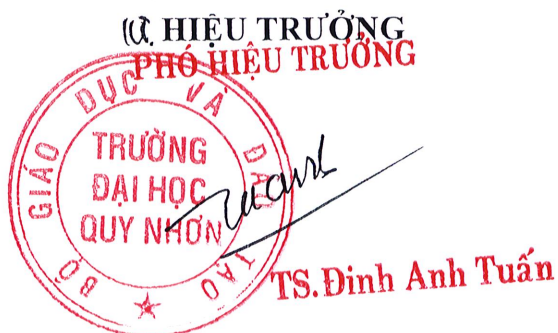 HIỆU TRƯỞNG
PHÓ HIỆU TRƯỞNG
BỘ GIÁO DỤC VÀ ĐÀO TẠO
TRƯỜNG
ĐẠI HỌC
QUY NHƠN
TS.Đinh Anh Tuấn